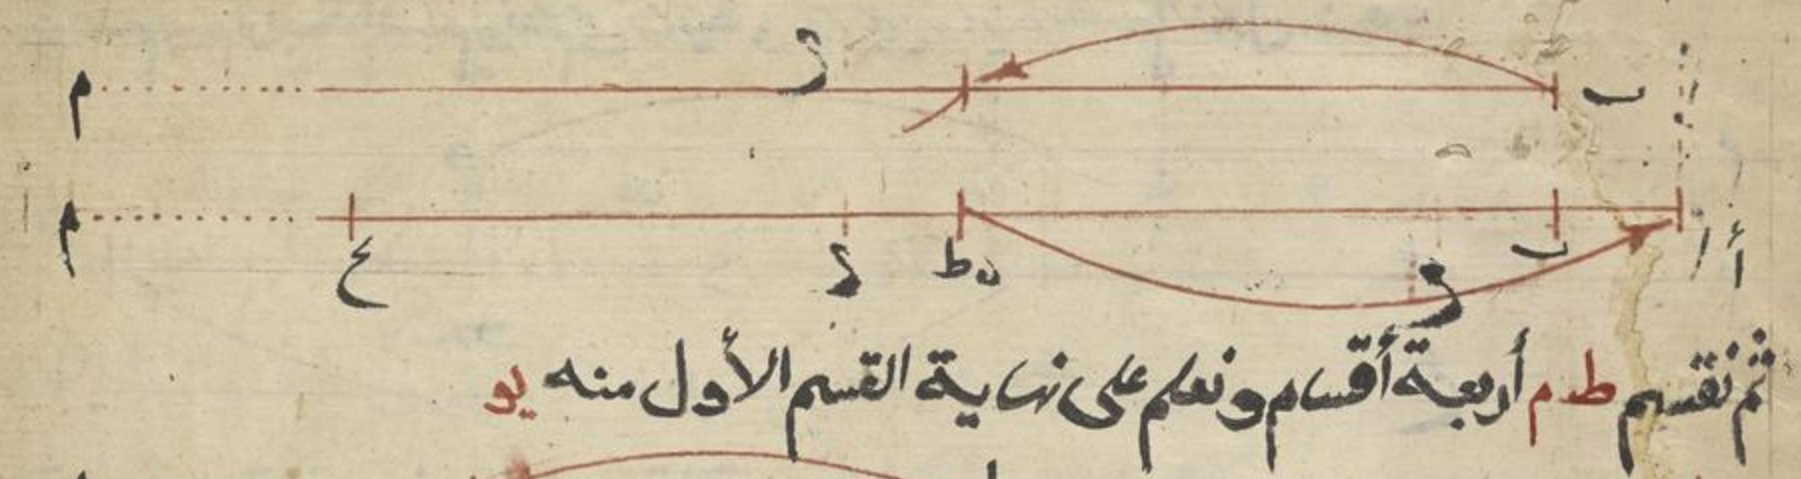 ب م
أ ا ب ه ط ح م
ثم نقسم ط م أربعة أقسام ونعلم على نهاية القسم الأول منه يو